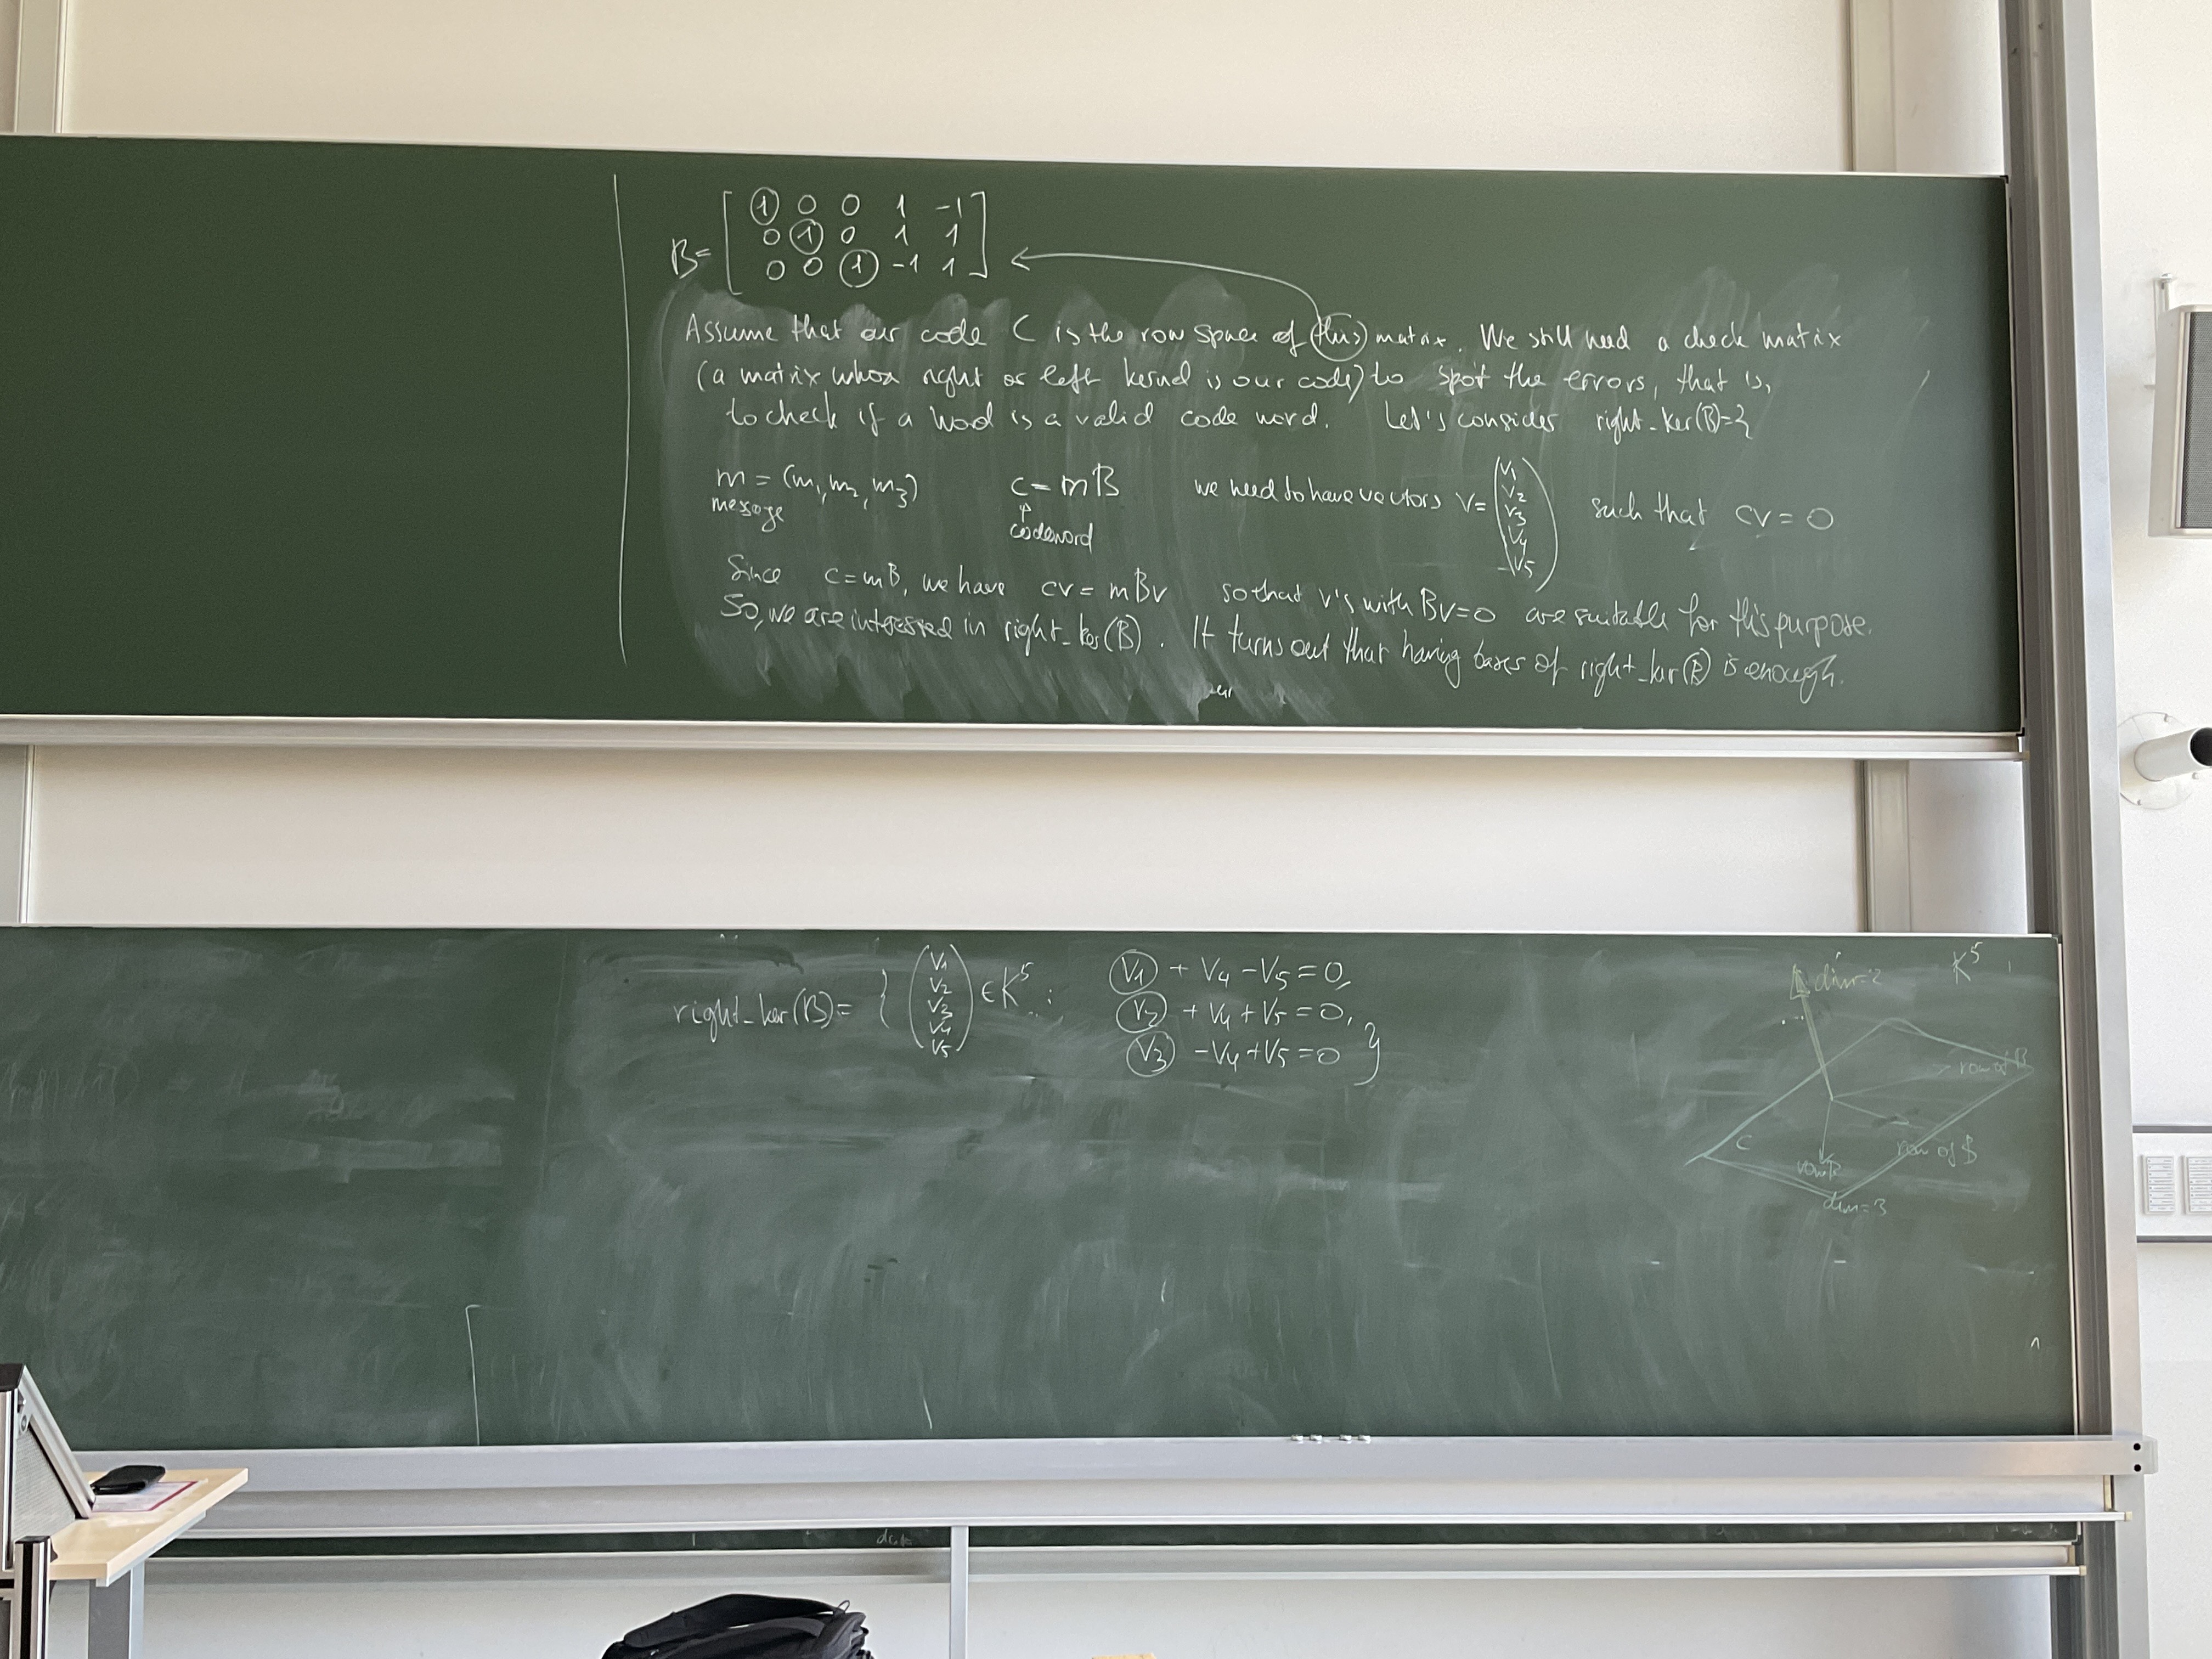 B= [ 1 0 0 1 -1
0 1 0 1 1
0 0 1 -1 1 ]
Assume that our code C is the row space of this matrix. We still need a check matrix
(a matrix whose right or left kernel is our code) to spot the errors, that is,
to check if a word is a valid code word. Let's consider right_ker(B)={
m = (m1, m2, m3) c = mB we need to have vectors v= (v1 v2 v3 v4 v5) such that cv = 0
message codeword
Since c=mB, we have cv = mBv so that v's with Bv=0 are suitable for this purpose.
So, we are interessed in right_ker(B). It turns out that having bases of right_ker(B) is enough.
right_ker(B)= { (v1 v2 v3 v4 v5) ∈ K^5 : v1 + v4 - v5 = 0,
v2 + v4 + v5 = 0,
v3 - v4 + v5 = 0 }
dim=2 K^5
row of B
C row of B
dim=3